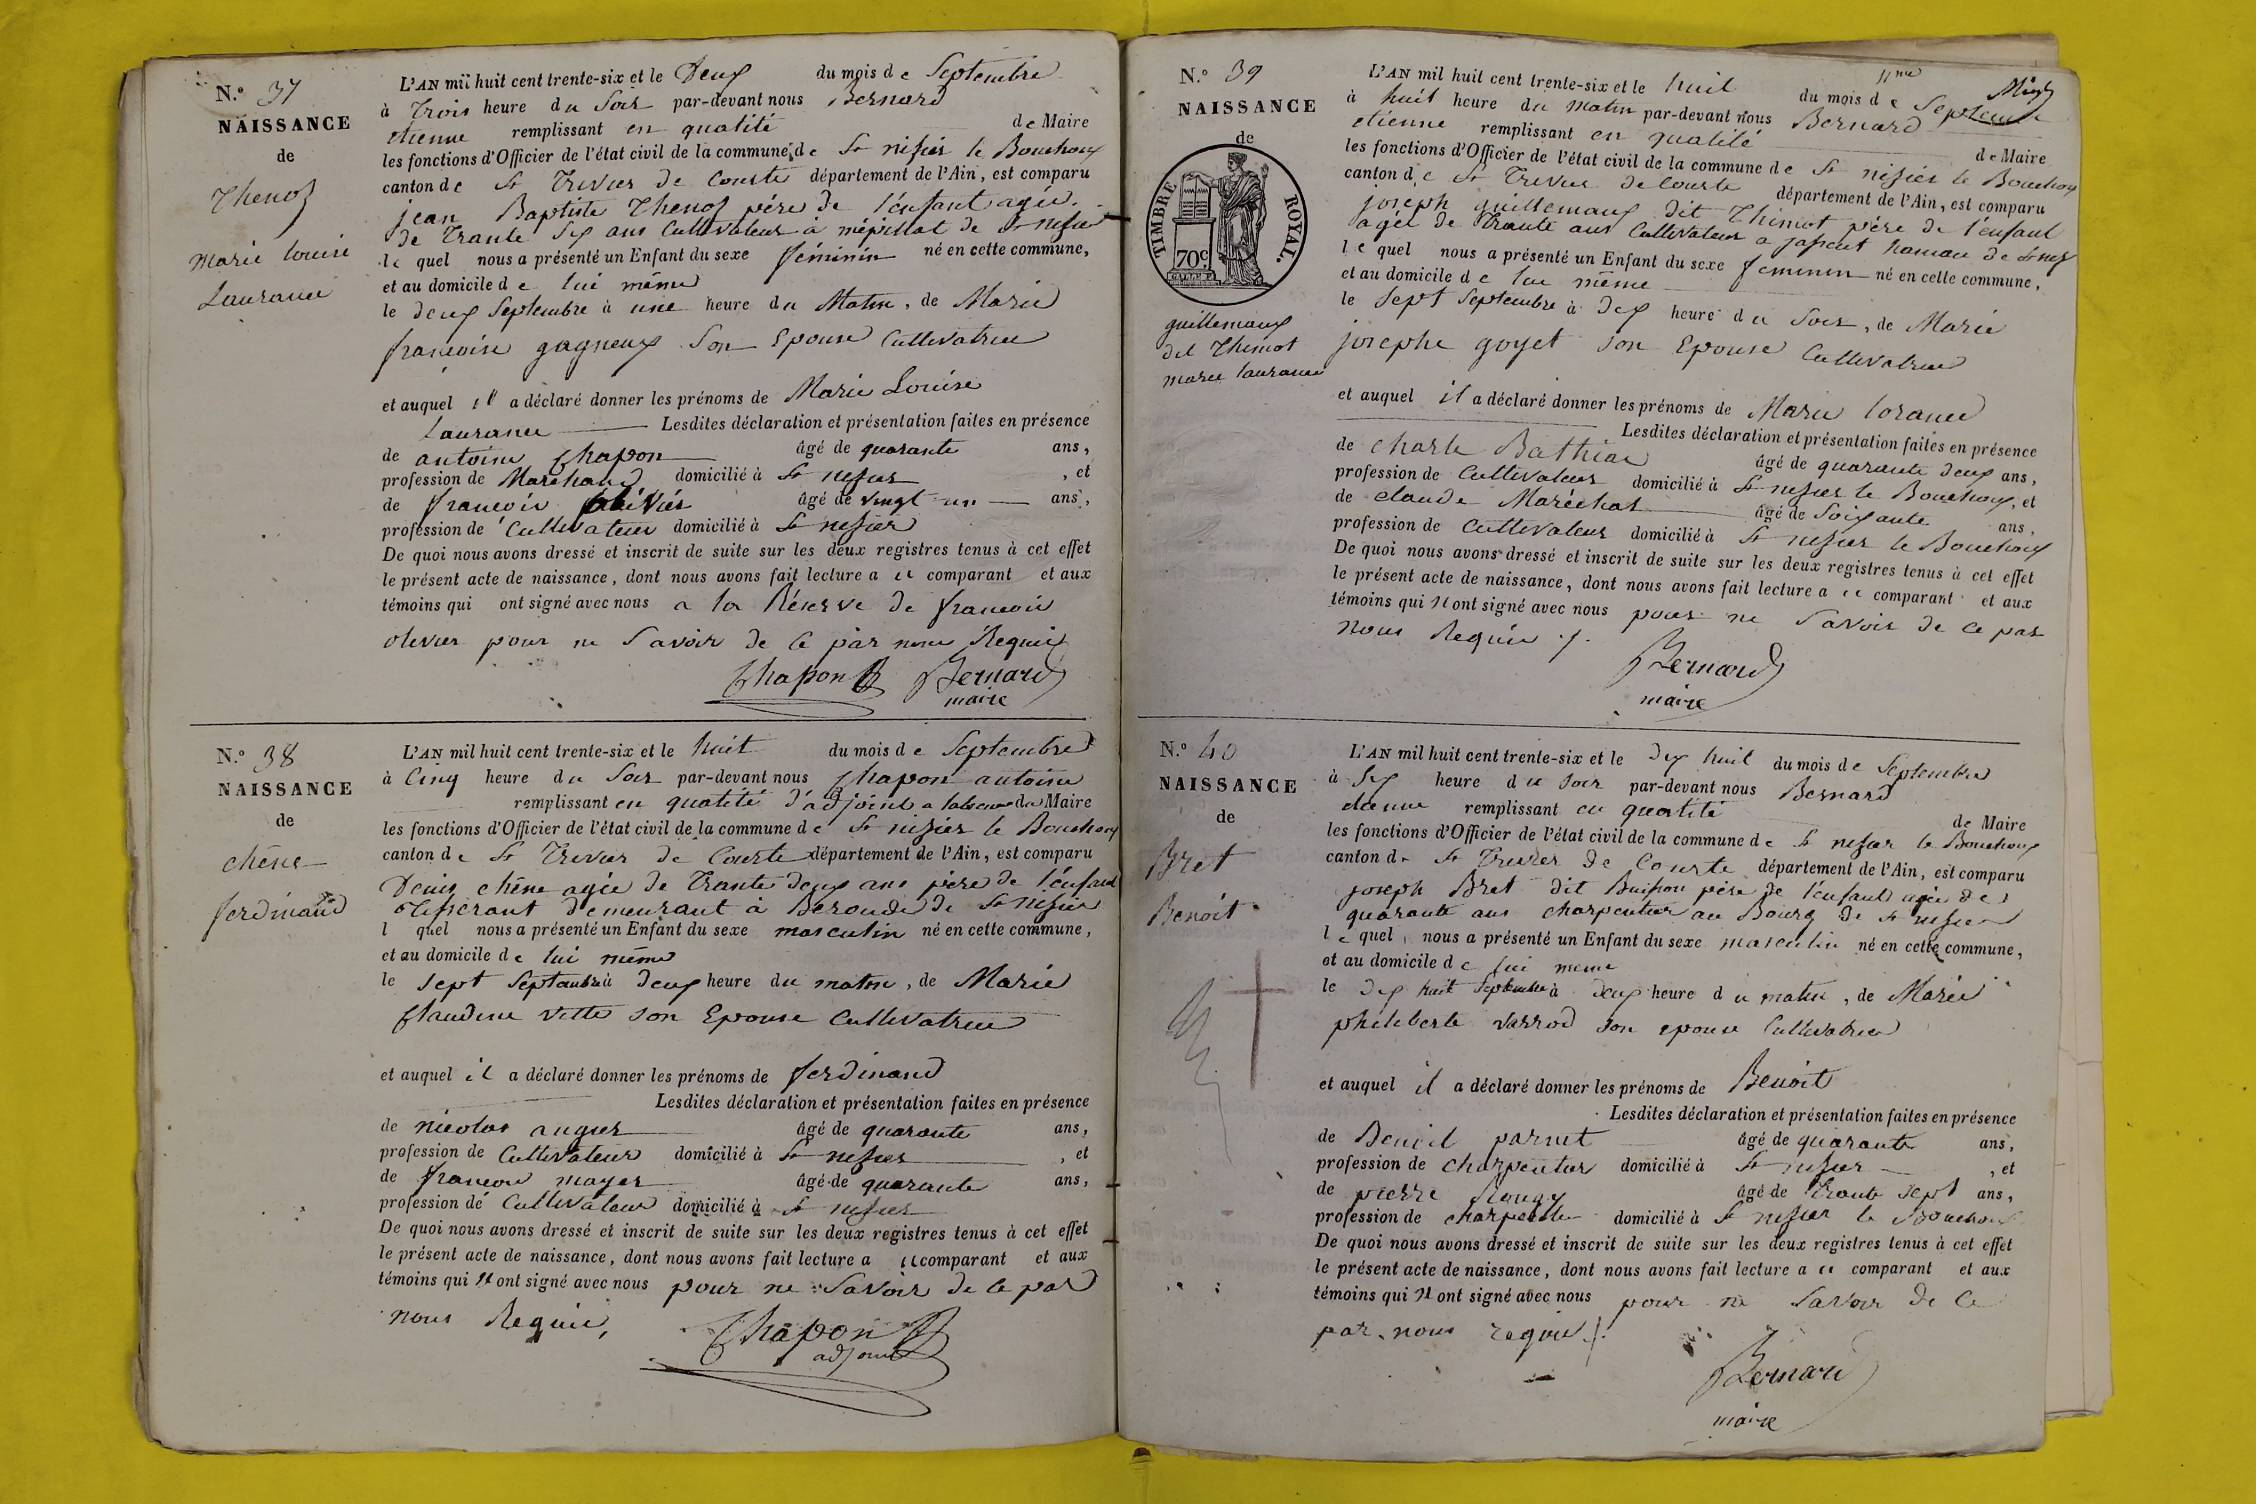 N.° 37
NAISSANCE
de
Thenoz
marie louise
Laurance
L'AN mil huit cent trente-six et le Deux du mois de Septembre
à trois heure du Soir par-devant nous Bernard
etienne remplissant en qualité de Maire
les fonctions d'Officier de l'état civil de la commune de St nizier le Bouchoux
canton de St Trivier de Courte département de l'Ain, est comparu
jean Baptiste Thenoz père de l'énfant agée
de Trante Six ans Cultivateur à mépillat de St nizier
le quel nous a présenté un Enfant du sexe féminin né en cette commune,
et au domicile de lui même
le deux Septembre à une heure du Matin, de Marie
françoise gagneux Son Epouse Cultivatrice
et auquel il a déclaré donner les prénoms de Marie Louise
Laurance Lesdites déclaration et présentation faites en présence
de antoine Chapon âgé de quarante ans,
profession de Marchand domicilié à St nizier , et
de francois olivier âgé de vingt un ans,
profession de Cultivateur domicilié à St nizier
De quoi nous avons dressé et inscrit de suite sur les deux registres tenus à cet effet
le présent acte de naissance, dont nous avons fait lecture a ce comparant et aux
témoins qui ont signé avec nous a la Réserve de francois
olivier pour ne Savoir de ce par nous Requis
Chapon Bernard
maire
N.° 38
NAISSANCE
de
chêne
ferdinand
L'AN mil huit cent trente-six et le huit du mois de Septembre
à Cinq heure du Soir par-devant nous Chapon antoine
remplissant en qualité d'adjoint a labsence du Maire
les fonctions d'Officier de l'état civil de la commune de St nizier le Bouchoux
canton de St Trivier de Courte département de l'Ain, est comparu
Denis chêne agée de Trante deux ans père de l'énfant
Tisserant demeurant à Beroude de St nizier
l quel nous a présenté un Enfant du sexe masculin né en cette commune,
et au domicile de lui même
le sept Septembre à deux heure du matin, de Marie
Claudine vitte son Epouse Cultivatrice
et auquel il a déclaré donner les prénoms de ferdinand
Lesdites déclaration et présentation faites en présence
de nicolas augier âgé de quarante ans,
profession de Cultivateur domicilié à St nizier , et
de francois mayer âgé de quarante ans,
profession de Cultivateur domicilié à St nizier
De quoi nous avons dressé et inscrit de suite sur les deux registres tenus à cet effet
le présent acte de naissance, dont nous avons fait lecture a ce comparant et aux
témoins qui n ont signé avec nous pour ne Savoir de ce par
nous Requis,
Chapon
adjoint
N.° 39
NAISSANCE
de
TIMBRE ROYAL.
70c
guillemaux
dit Thimot
marie laurance
11me
L'AN mil huit cent trente-six et le huit du mois de Septembre
à huit heure du matin par-devant nous Bernard
etienne remplissant en qualité de Maire
les fonctions d'Officier de l'état civil de la commune de St nizier le Bouchoux
canton de St Trivier de Courte département de l'Ain, est comparu
joseph guillemaux dit Thimot père de l'énfant
agée de Trante ans Cultivateur a hamau de St nizier
le quel nous a présenté un Enfant du sexe feminin né en cette commune,
et au domicile de lui même
le Sept Septembre à dix heure du Soir, de Marie
josephe goyet son Epouse Cultivatrice
et auquel il a déclaré donner les prénoms de Marie lorance
Lesdites déclaration et présentation faites en présence
de charle Bathiar âgé de quarante deux ans,
profession de Cultivateur domicilié à St nizier le Bouchoux, et
de claude Maréchal âgé de Soixante ans,
profession de Cultivateur domicilié à St nizier le Bouchoux
De quoi nous avons dressé et inscrit de suite sur les deux registres tenus à cet effet
le présent acte de naissance, dont nous avons fait lecture a ce comparant et aux
témoins qui n ont signé avec nous pour ne Savoir de ce par
nous Requis ./.
Bernard
maire
N.° 40
NAISSANCE
de
Bret
Benoit
L'AN mil huit cent trente-six et le dix huit du mois de Septembre
à Six heure du soir par-devant nous Bernard
etienne remplissant en qualité de Maire
les fonctions d'Officier de l'état civil de la commune de St nizier le Bouchoux
canton de St Trivier de Courte département de l'Ain, est comparu
joseph Bret dit Buisson père de l'énfant agée de
quarante ans charpentier au Bourg de St nizier
le quel nous a présenté un Enfant du sexe masculin né en cette commune,
et au domicile de lui meme
le dix huit Septembre à deux heure du matin, de Marie
philiberte varrod son epouse Cultivatrice
et auquel il a déclaré donner les prénoms de Benoit
Lesdites déclaration et présentation faites en présence
de Benoit parnet âgé de quarante ans,
profession de charpentier domicilié à St nizier , et
de pierre âgé de Trante Sept ans,
profession de charpentier domicilié à St nizier le Bouchoux
De quoi nous avons dressé et inscrit de suite sur les deux registres tenus à cet effet
le présent acte de naissance, dont nous avons fait lecture a ce comparant et aux
témoins qui n ont signé avec nous pour ne Savoir de ce
par nous requis ./.
Bernard
maire